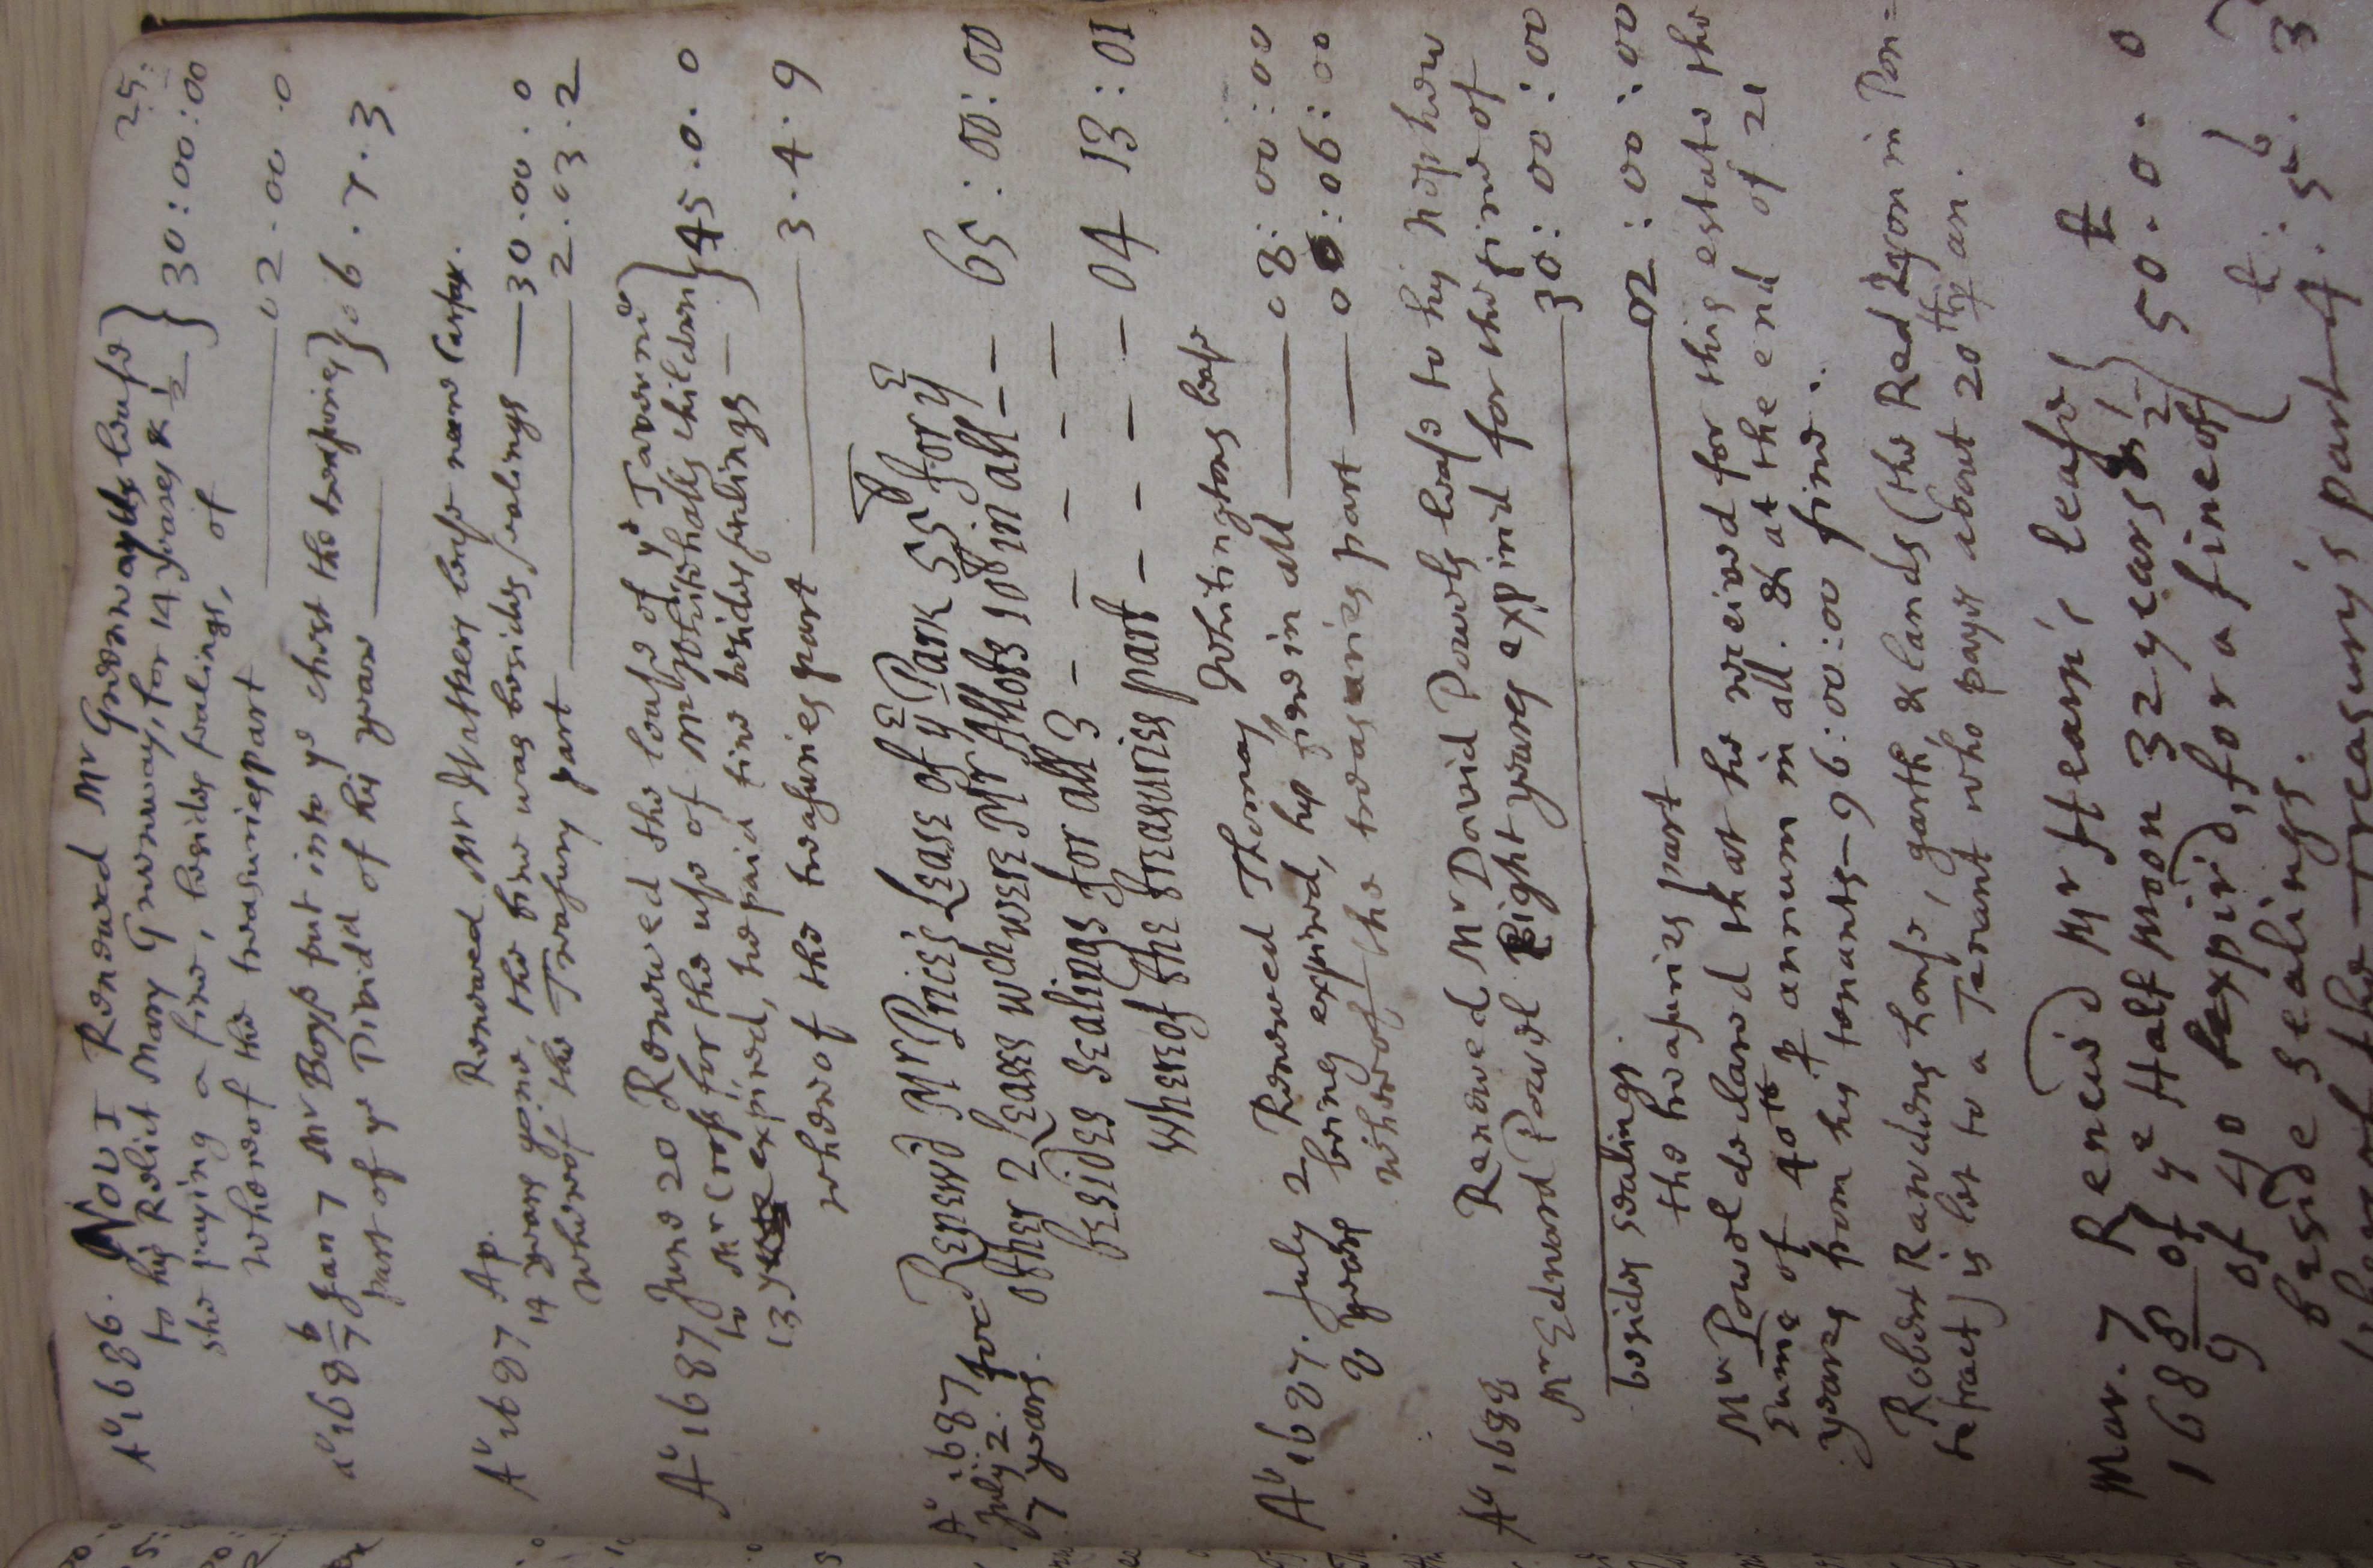 25:
Ao 1686. Nov 1 Renewed Mr Greenwayes lease
to his Relict Mary Greenway, for 14 yeares & 1/2 } 30:00:00
she paying a fine, besides sealings, of
whereof the treasuries part —— 02.00.0
ao 168 6/7 Jan 7 Mr Boys put into ye chest the treasuries } 06.7.3
part of ye Divid of his year ——
Renewed Mr Matthews lease near Carfax.
Ao 1687 Ap.
14 years gone, the fine was besides sealings —— 30.00.0
whereof the Treasury part —— 2.03.2
Ao 1687 June 20 Renewed the lease of ye Taverne
to Mr Cross for the use of Mr children } 45.0.0
13 years expired, he paid fine besides sealings —
whereof the treasuries part —— 3.4.9
Ao 1687 July 2. for 7 years.
Renew'd Mr Price's Lease of ye Park 55 for ye
other 2 Leases wch were Mr Allots in all — — 65:00:00
besides sealings for all 3 — — — — —
whereof the treasuries part — — — — 04 13:01
Ao 1687. July 2 Renewed Thomas Whitingtons lease
8 years being expired, his fine in all —— 08:00:00
whereof the treasuries part —— 00:06:00
Ao 1688 Renewed Mr David Powels lease to his Nephew
Mr Edward Powel Eight yeares expired for the fine of
—— 30:00:00
besides sealings.
the treasuries part —— 02:00:00
Mr Powel declared that he received for this estate the
summe of 40li p annum in all. & at the end of 21
yeares from his tenants — 96:00:00 fine.
Robert Rawlins house, garth, & lands (the Red Lyon in Pon=
tefract) is let to a Tenant who payes about 20li p an.
Mar. 7 Renew'd Mr Hearn's lease
168 8/9 of ye Half moon 32 years & 1/2 } 50.0.0
of 40 expir'd, for a fine of
beside sealings.
whereof the treasury's part 4.5.3